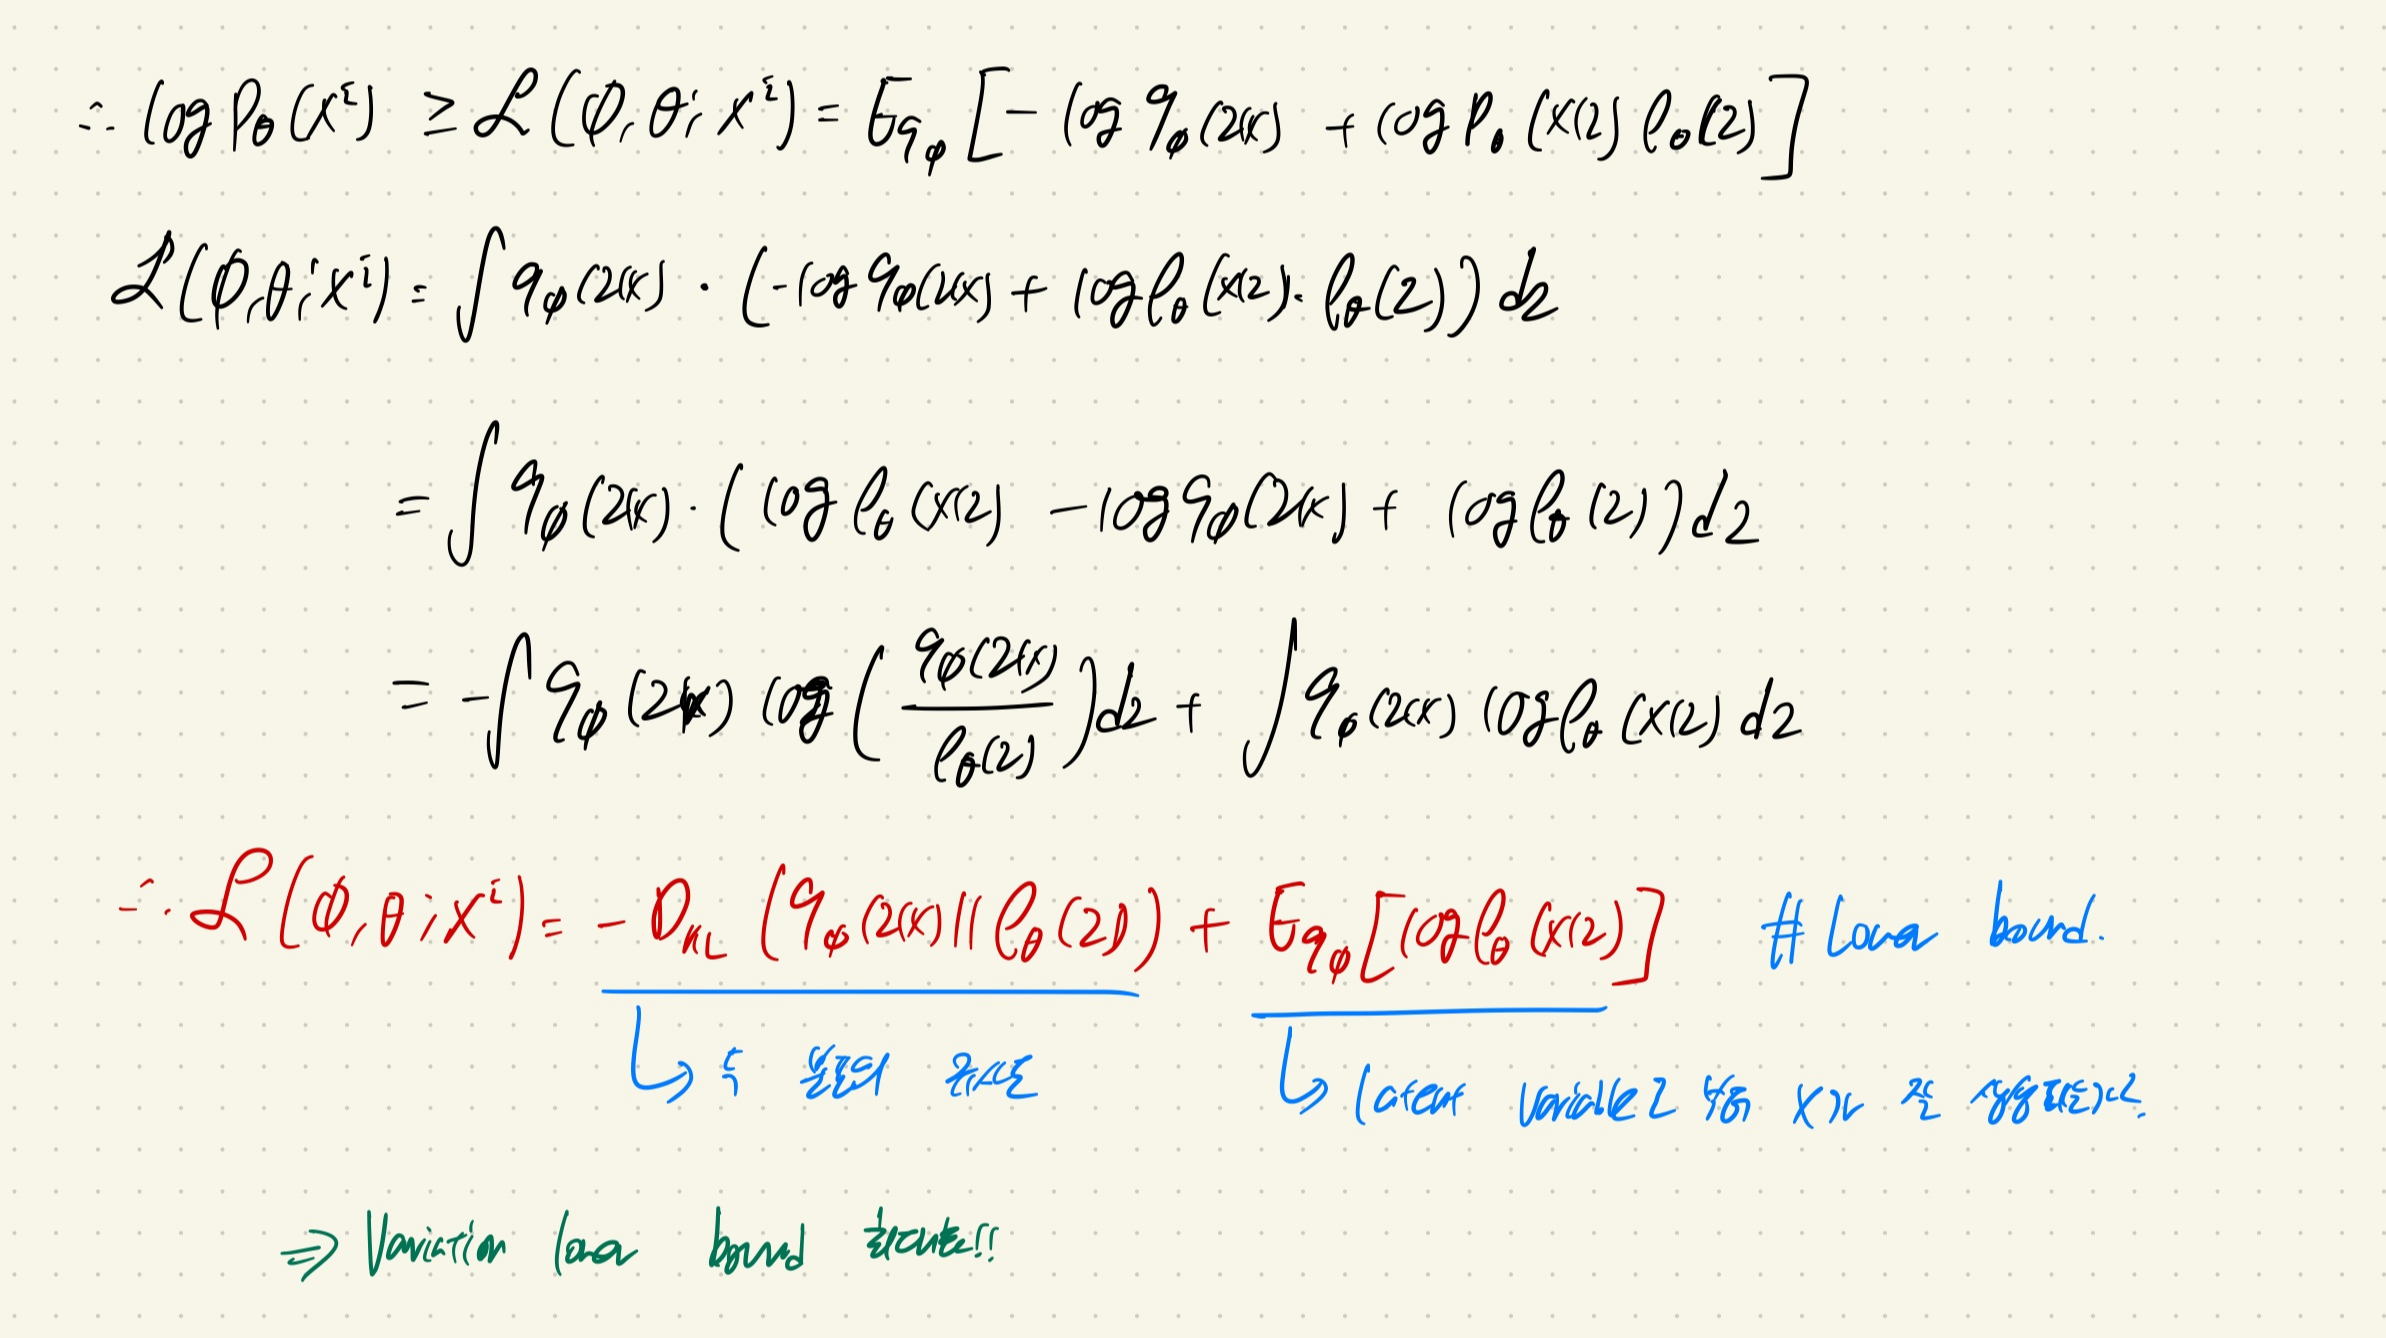 ∴ log Pθ(xⁱ) ≥ ℒ(φ, θ; xⁱ) = E_qφ[ - log qφ(z|x) + log Pθ(x|z) Pθ(z) ]
ℒ(φ, θ; xⁱ) = ∫ qφ(z|x) · (-log qφ(z|x) + log Pθ(x|z) · Pθ(z)) dz
= ∫ qφ(z|x) · (log Pθ(x|z) - log qφ(z|x) + log Pθ(z)) dz
= -∫ qφ(z|x) log( qφ(z|x) / Pθ(z) ) dz + ∫ qφ(z|x) log Pθ(x|z) dz
∴ ℒ(φ, θ; xⁱ) = - D_KL (qφ(z|x) || Pθ(z)) + E_qφ[log Pθ(x|z)] # Lower bound.
↳ 두 분포의 유사도
↳ latent variable z 부터 x가 잘 생성되는가?
⇒ Variation lower bound 최대화!!